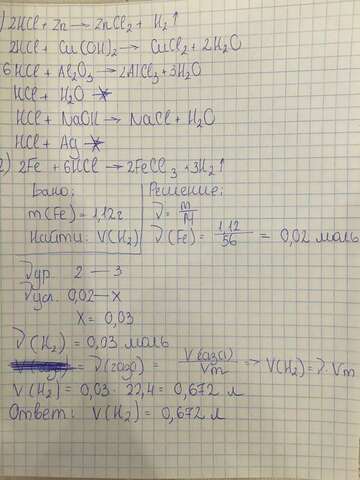 1) 2HCl + Zn → ZnCl₂ + H₂↑
2HCl + Cu(OH)₂ → CuCl₂ + 2H₂O
6HCl + Al₂O₃ → 2AlCl₃ + 3H₂O
HCl + H₂O ↛
HCl + NaOH → NaCl + H₂O
HCl + Ag ↛
2) 2Fe + 6HCl → 2FeCl₃ + 3H₂↑
Дано:
m(Fe) = 1,12г
Найти: V(H₂)
Решение:
ν = m/M
ν(Fe) = 1,12/56 = 0,02 моль
ν ур. 2 — 3
ν усл. 0,02 — x
x = 0,03
ν(H₂) = 0,03 моль
= ν(газа) = V(газа)/Vm => V(H₂) = ν · Vm
V(H₂) = 0,03 · 22,4 = 0,672 л
Ответ: V(H₂) = 0,672 л